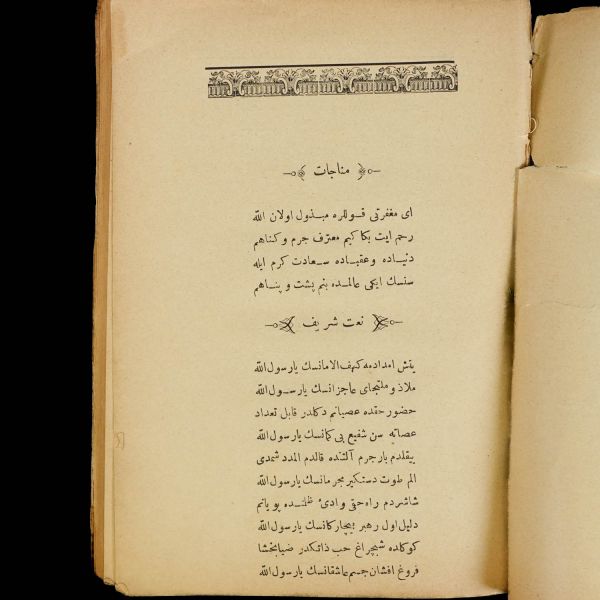 مناجات
ای مغفرتی قوللره مبذول اولان الله
رحم ایت بکا کیم معترف جرم و کناهم
دنیاده و عقباده سعادت کرم ایله
سنسك ایکی عالمده بنم پشت و پناهم
نعت شریف
یتش امدادمه کهف الامانسك یارسول الله
ملاذ و ملتجای عاجزانسك یارسول الله
حضور حقده عصیانم دکلدر قابل تعداد
عصاته سن شفیع بی کمانسك یارسول الله
ییقلدم بار جرم آلتنده قالدم المدد شمدی
الم طوت دستکیر مجرمانسك یارسول الله
شاشردم راه حقی وادئ ظلمتده پویانم
دلیل اول رهبر بیچارکانسك یارسول الله
کوکلده شبچراغ حب ذاتکدر ضیابخشا
فروغ افشان جسم عاشقانسك یارسول الله